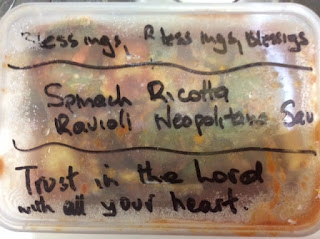 Blessings, Blessings, Blessings
Spinach Ricotta
Ravioli Neopolitana Sau
Trust in the Lord
with all your heart.